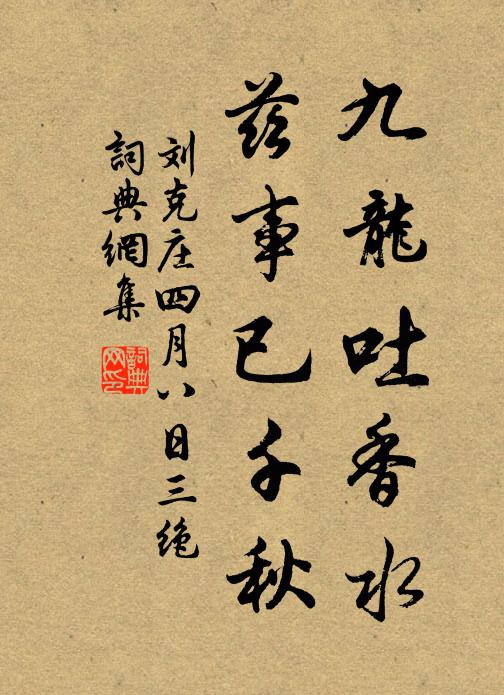 九龍吐香水
茲事已千秋
刘克庄四月八日三绝
詞典網集
詞典网印